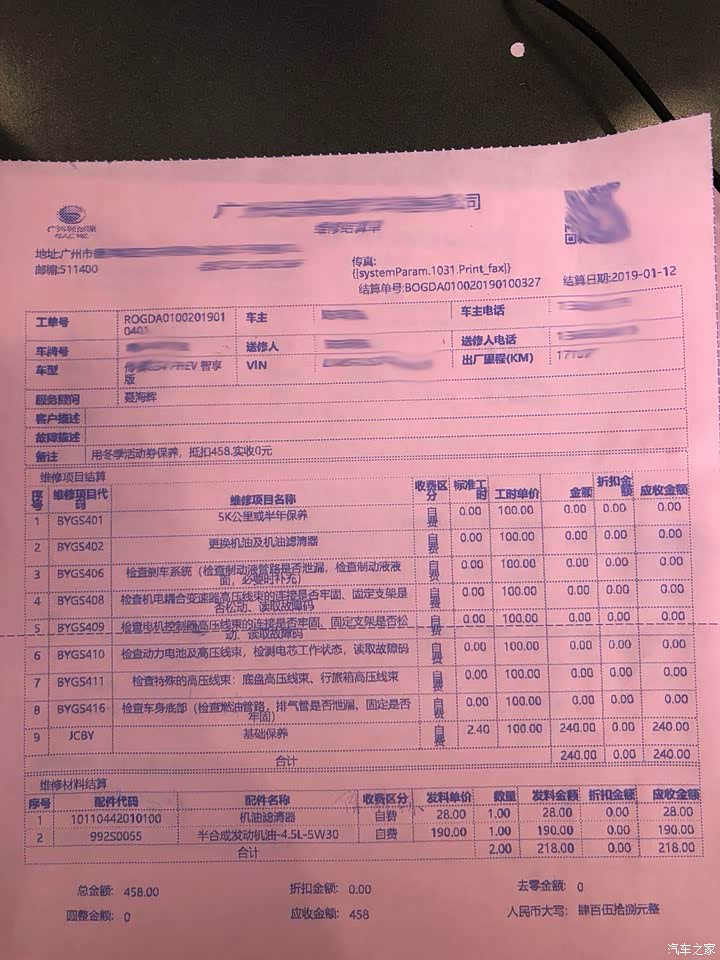 维修结算单
地址:广州市
邮编:511400
传真:
{[systemParam.1031.Print_fax]}
结算单号:BOGDA010020190100327 结算日期:2019-01-12
工单号 ROGDA0100201901 车主 车主电话
车牌号 送修人 送修人电话
车型 智享版 VIN 出厂里程(KM)
服务顾问 聂海辉
客户描述
故障描述
备注 用冬季活动券保养,抵扣458.实收0元
维修项目结算
序号 维修项目代码 维修项目名称 收费区分 标准工时 工时单价 金额 折扣金额 应收金额
1 BYGS401 5K公里或半年保养 自费 0.00 100.00 0.00 0.00 0.00
2 BYGS402 更换机油及机油滤清器 自费 0.00 100.00 0.00 0.00 0.00
3 BYGS406 检查刹车系统(检查制动液管路是否泄漏,检查制动液液面,必要时补充) 自费 0.00 100.00 0.00 0.00 0.00
4 BYGS408 检查机电耦合变速器高压线束的连接是否牢固、固定支架是否松动、读取故障码 自费 0.00 100.00 0.00 0.00 0.00
5 BYGS409 检查电机控制器高压线束的连接是否牢固、固定支架是否松动、读取故障码 自费 0.00 100.00 0.00 0.00 0.00
6 BYGS410 检查动力电池及高压线束,检测电芯工作状态,读取故障码 自费 0.00 100.00 0.00 0.00 0.00
7 BYGS411 检查特殊的高压线束:底盘高压线束、行旅箱高压线束 自费 0.00 100.00 0.00 0.00 0.00
8 BYGS416 检查车身底部(检查燃油管路,排气管是否泄漏、固定是否牢固) 自费 0.00 100.00 0.00 0.00 0.00
9 JCBY 基础保养 自费 2.40 100.00 240.00 0.00 240.00
合计 240.00 0.00 240.00
维修材料结算
序号 配件代码 配件名称 收费区分 发料单价 数量 发料金额 折扣金额 应收金额
1 10110442010100 机油滤清器 自费 28.00 1.00 28.00 0.00 28.00
2 992S0055 半合成发动机油-4.5L-5W30 自费 190.00 1.00 190.00 0.00 190.00
合计 2.00 218.00 0.00 218.00
总金额: 458.00 折扣金额: 0.00 去零金额: 0
圆整金额: 0 应收金额: 458 人民币大写: 肆百伍拾捌元整
汽车之家